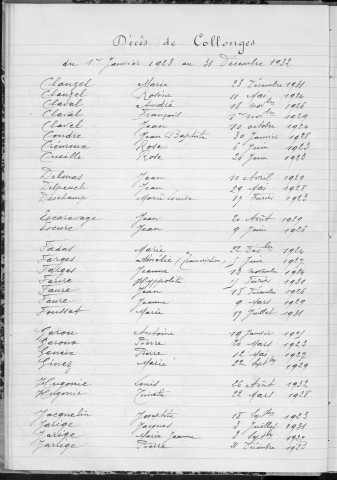 Décès de Collonges
du 1er Janvier 1923 au 31 Décembre 1932
Clauzel Marie 23 Décembre 1931
Clauzel Rosine 11 Mai 1924
Claval André 18 novbre 1926
Claval François 1er novbre 1929
Clavel Jean 10 octobre 1924
Coudre Jean Baptiste 2 Janvier 1928
Crémoux Rose 6 Juin 1923
Cueille Rose 26 Juin 1923
Delmas Jean 10 Avril 1929
Delpeuch Jean 29 Mai 1928
Deschamp Marie Louise 17 Février 1923
Escaravage Jean 20 Août 1929
Escure Jean 9 Juin 1926
Fadat Marie 22 1924
Farges Amélie 5 Juin 1927
Farges Jeanne 13 novembre 1924
Faure Hyppolite 5 Février 1931
Faure Jean 18 Décembre 1926
Faure Jeanne 9 Mars 1929
Foussat Marie 17 Juillet 1931
Garou Antoine 19 Janvier
Pierre 20 Mars 1923
Geneix Pierre 12 Mai 1927
Ginez Marie 22 Septbre 1929
Hugonie Louis 26 Août 1932
Hugonie 22 Mars 1928
Jacquelin 18 Septbre 1923
Jarrige Jacques 3 Juillet 1931
Jarrige Marie Jeanne 8 Septbre
Jarrige Pierre 21 Décembre